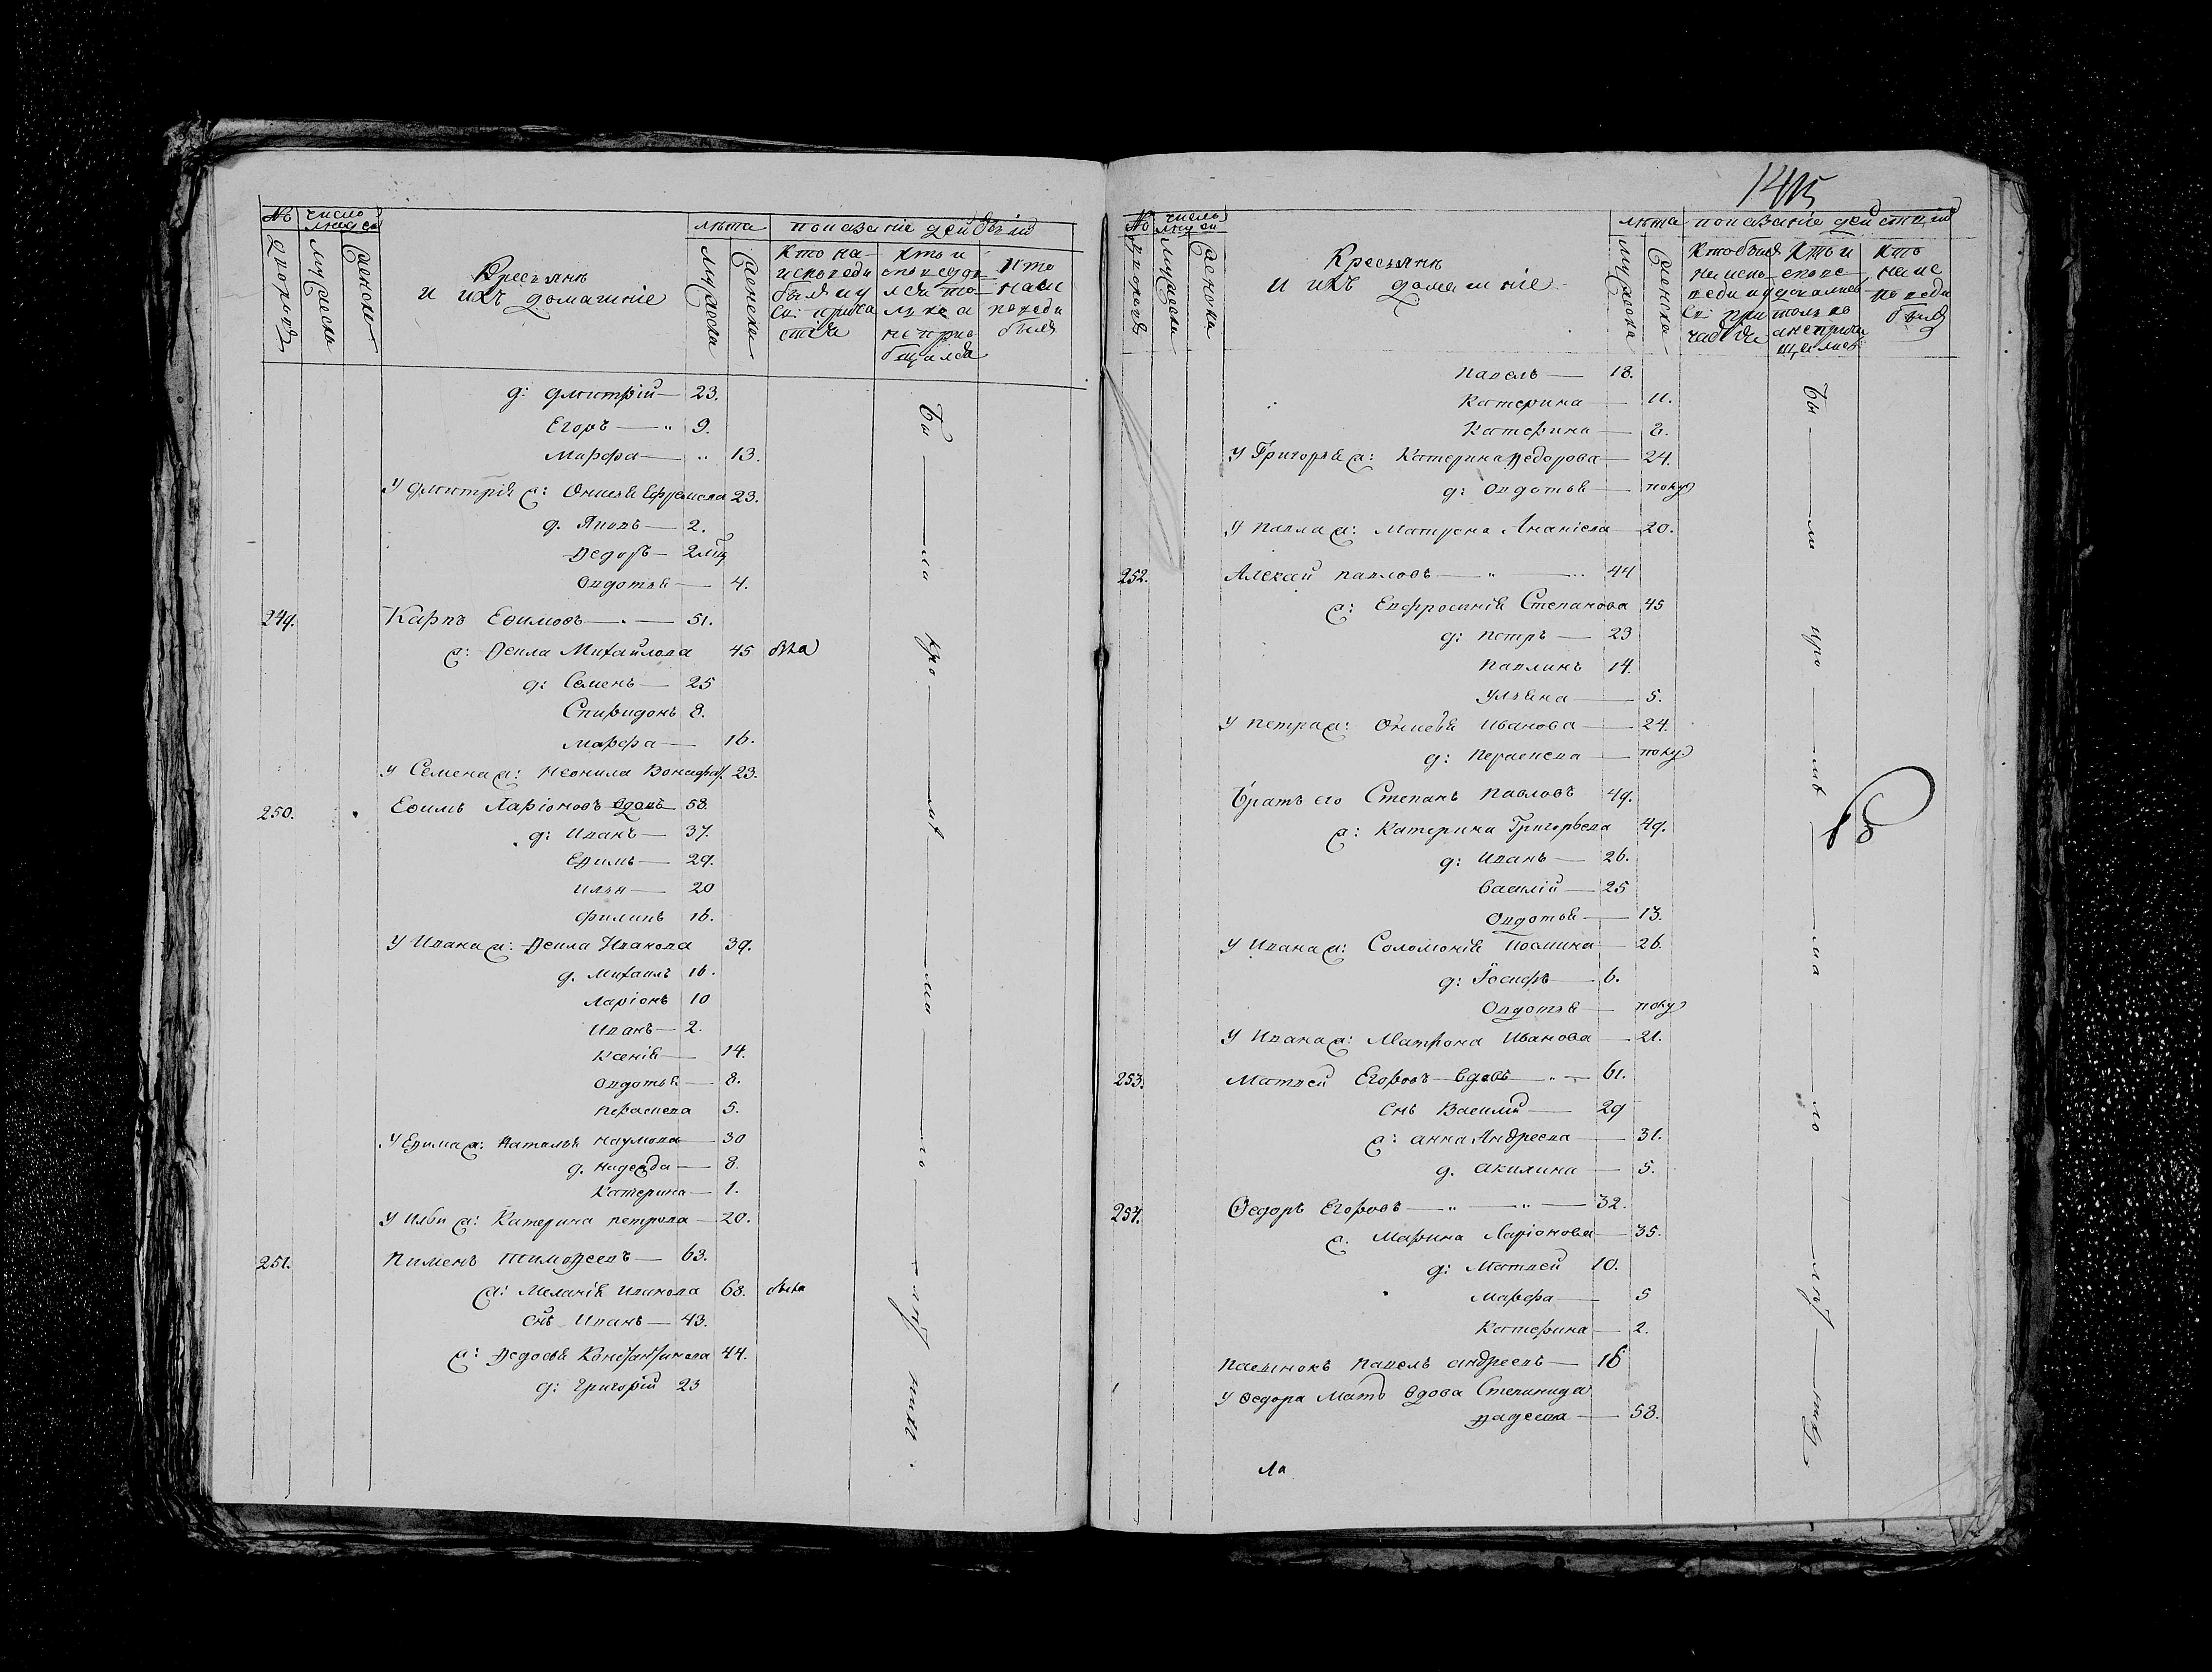 № число людей
дворовъ мужеска женска
Крестьянѣ
и ихъ домашніе
лѣта
мужеска женска
показаніе действій
кто на исповеди былъ и у св: причастія
кто исповедался токмо а не приобщался
кто на исповеди былъ
д: дмитрій — 23.
Егоръ — 9.
Марфа — 13.
У дмитрія ж: Онисья Ефремова 23.
д. Яковъ — 2.
Ѳедоръ — 2 мц
Овдотья — 4.
249. Карпъ Ефимовъ — 51.
ж: Ѳекла Михайлова 45
д: Семенъ — 25
Спиридонъ 8.
Марфа — 16.
У Семена ж: Неонила 23.
250. Ефимъ Ларіоновъ вдовъ 58.
д: Иванъ — 37.
Ефимъ — 29.
Илья — 20
филипъ 16.
У Ивана ж: Ѳекла Иванова 39.
д. Михаилъ 16.
Ларіонъ 10
Иванъ — 2.
Ксенія — 14.
Овдотья — 8.
Парасковa 5.
У Ефима ж: Наталья Наумова — 30
д. Надежда — 8.
Катерина — 1.
У Ильи ж: Катерина петрова — 20.
251. Пименъ тимоѳеевъ — 63.
ж: Меланія иванова 68.
снъ Иванъ — 43.
ж: Ѳедосья Константинова 44.
д: григорій 23
бы ла кро мѣ ма ло лѣт нихъ.
1415
№ число людей
дворовъ мужеска женска
Крестьянѣ
и ихъ домашніе
лѣта
мужеска женска
показаніе действій
кто былъ на исповеди и у св: причастія
кто исповедались токмо а не причащались
кто на исповеди былъ
павелъ — 18.
Катерина — 11.
Катерина — 2.
У Григорья ж: Катерина Ѳедорова — 24.
д: Овдотья — полу
У павла ж: Матрона Ананіева — 20.
252. Алексай павловъ — 44
ж: Евфросинія Степанова 45
д: петръ — 23
павлинъ 14.
Ульяна — 5.
У петра ж: Онисья иванова — 24.
д: параскева — полу
Братъ его Степанъ павловъ 49.
ж: Катерина Григорьева 49.
д: Иванъ — 26.
василій — 25
Овдотья — 13.
У Ивана ж: Соломонія — 26.
д: Іосифъ — 6.
Овдотья — полу
У Ивана ж: Матрона иванова — 21.
253. Матвей Егоровъ вдовъ — 61.
снъ Василій — 29
ж: анна Андреева — 31.
д. акилина — 5.
254. Ѳедоръ Егоровъ — 32.
ж. Марина Ларіонова — 35.
д: Матвей 10.
Марфа — 5
Катерина — 2.
пасынокъ павелъ андреевъ — 16
У Ѳедора мать вдова Степанида
Ѳадеева — 53.
бы ли кро мѣ ма ло лѣт нихъ
ла